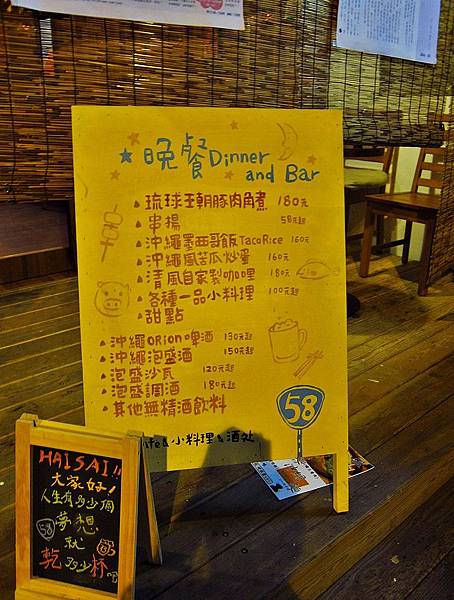 晚餐Dinner
and Bar
琉球王朝豚肉角煮 180元
串揚 58元起
沖繩墨西哥飯TacoRice 160元
沖繩風苦瓜炒蛋 160元
清風自家製咖哩 180元
各種一品小料理 100元起
甜點
沖繩ORION啤酒 130元起
沖繩泡盛酒 150元起
泡盛沙瓦 120元起
泡盛調酒 180元起
其他無精酒飲料
58
&小料理&酒处
HAISAI!!
大家好!
人生有多少個
58 夢想
就
乾多少杯吧